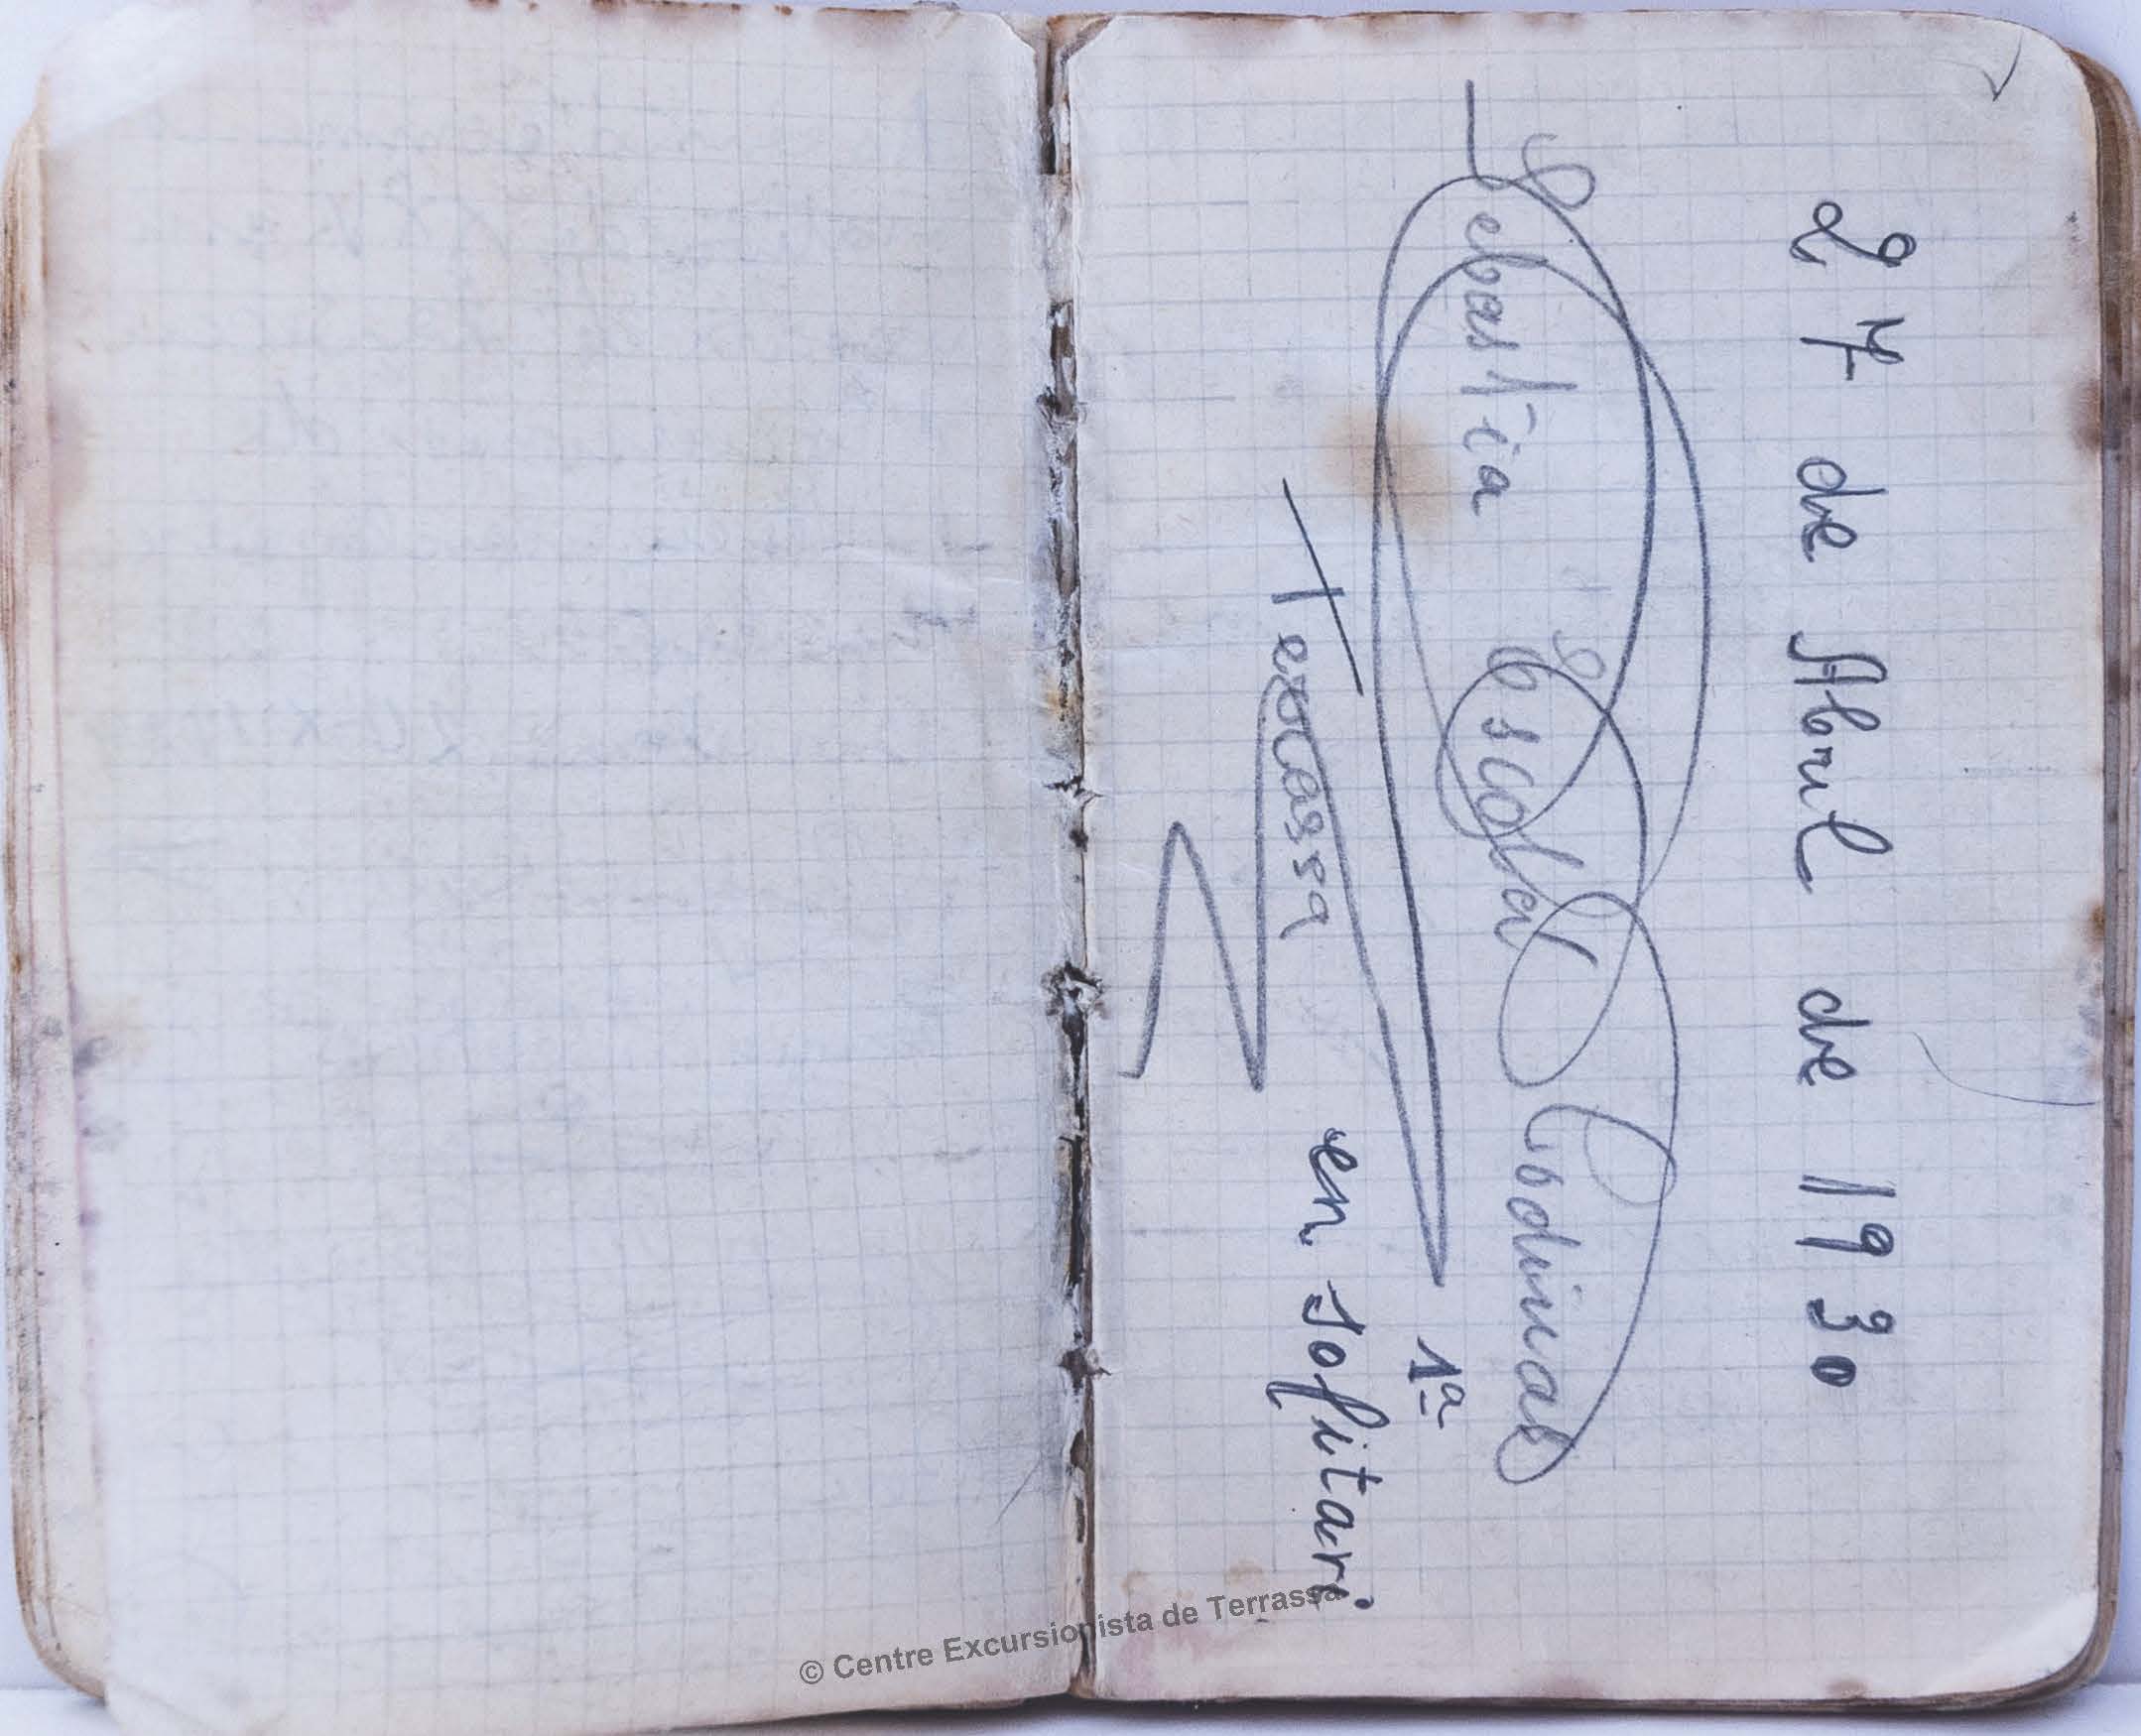 27 de Abril de 1930
Sebastia Escofet Codinas
1ª
Terrassa en solitari
© Centre Excursionista de Terrassa